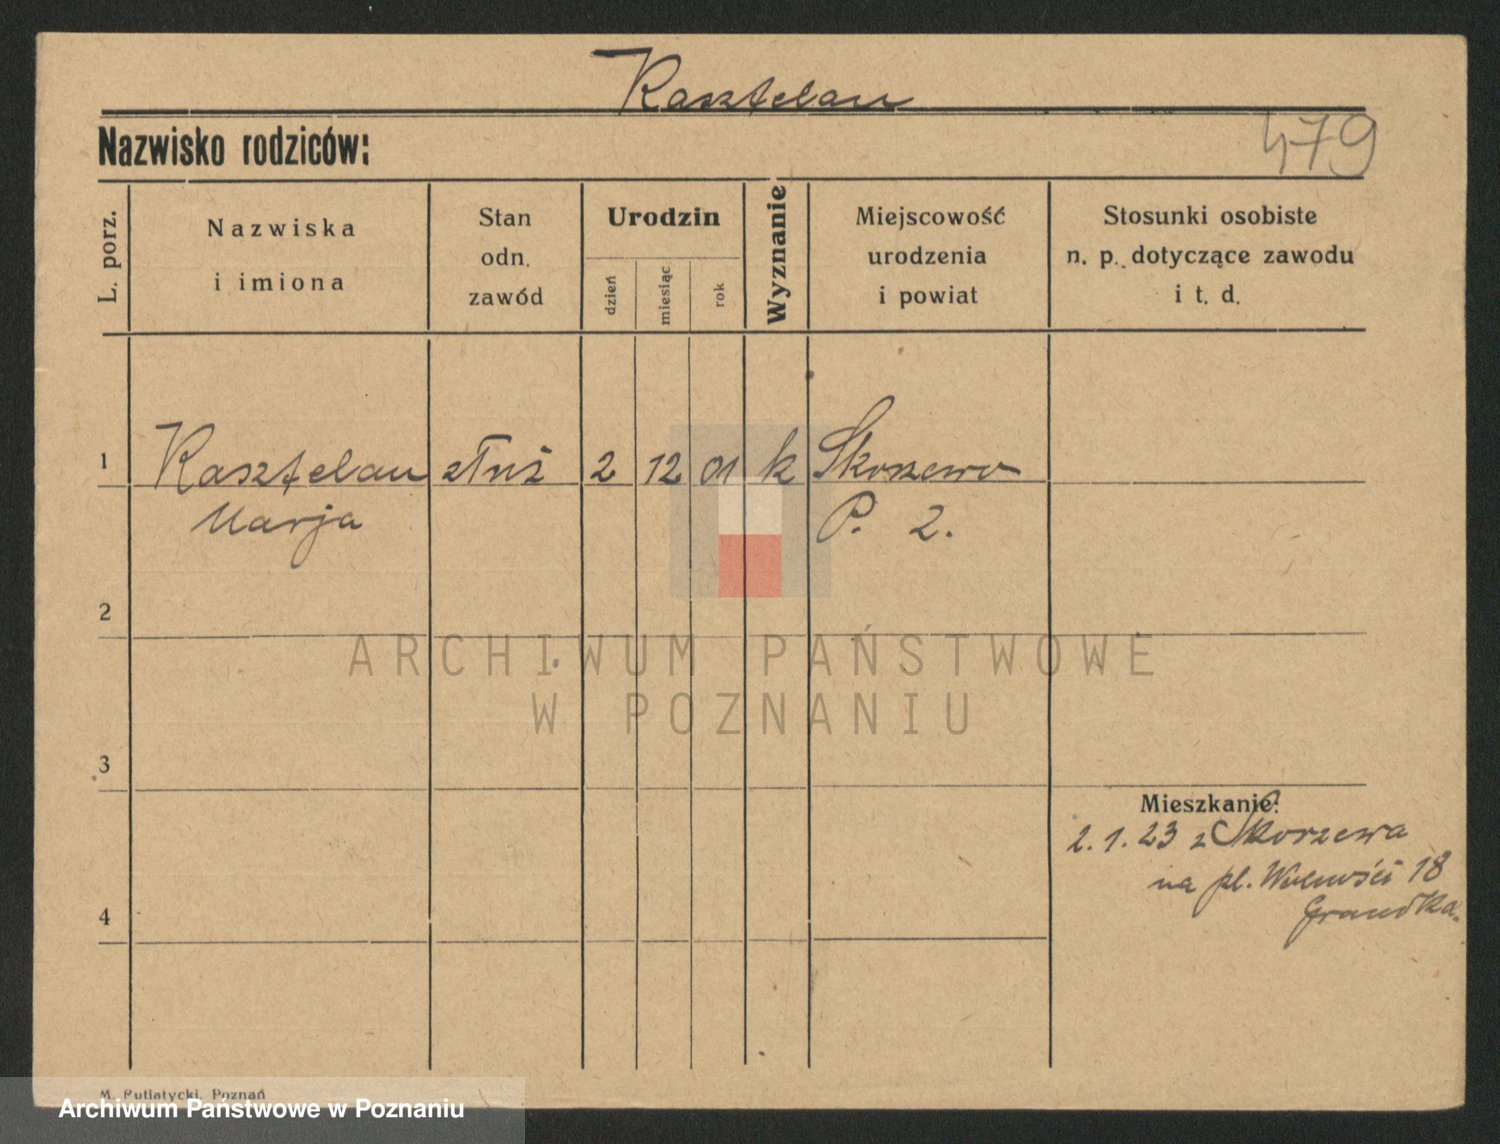 Kasztelan
Nazwisko rodziców:
479
L. porz.
Nazwiska
i imiona
Stan
odn.
zawód
Urodzin
dzień
miesiąc
rok
Wyznanie
Miejscowość
urodzenia
i powiat
Stosunki osobiste
n. p. dotyczące zawodu
i t. d.
1 Kasztelan służ 2 12 01 k Skorzewo
Marja P. 2.
2
ARCHIWUM PAŃSTWOWE
W POZNANIU
3
Mieszkanie:
2.1.23 z Skorzewa
na pl. Wolności 18
4
M. Putiatycki, Poznań
Archiwum Państwowe w Poznaniu